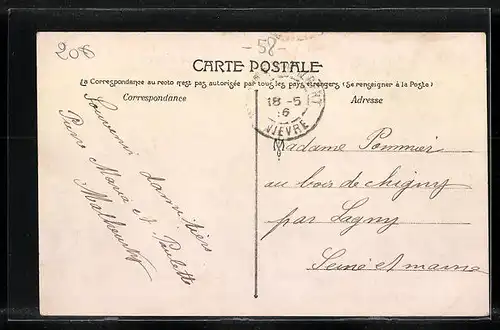 208
- 58 -
CARTE POSTALE
La Correspondance au recto n'est pas autorisée par tous les pays étrangers (Se renseigner à la Poste)
Correspondance
Adresse
18-5
NIEVRE
Souvenir d'amitiés
Maria et Paulette
Madame Pommier
au bois de Chigny
par Lagny
Seine et marne